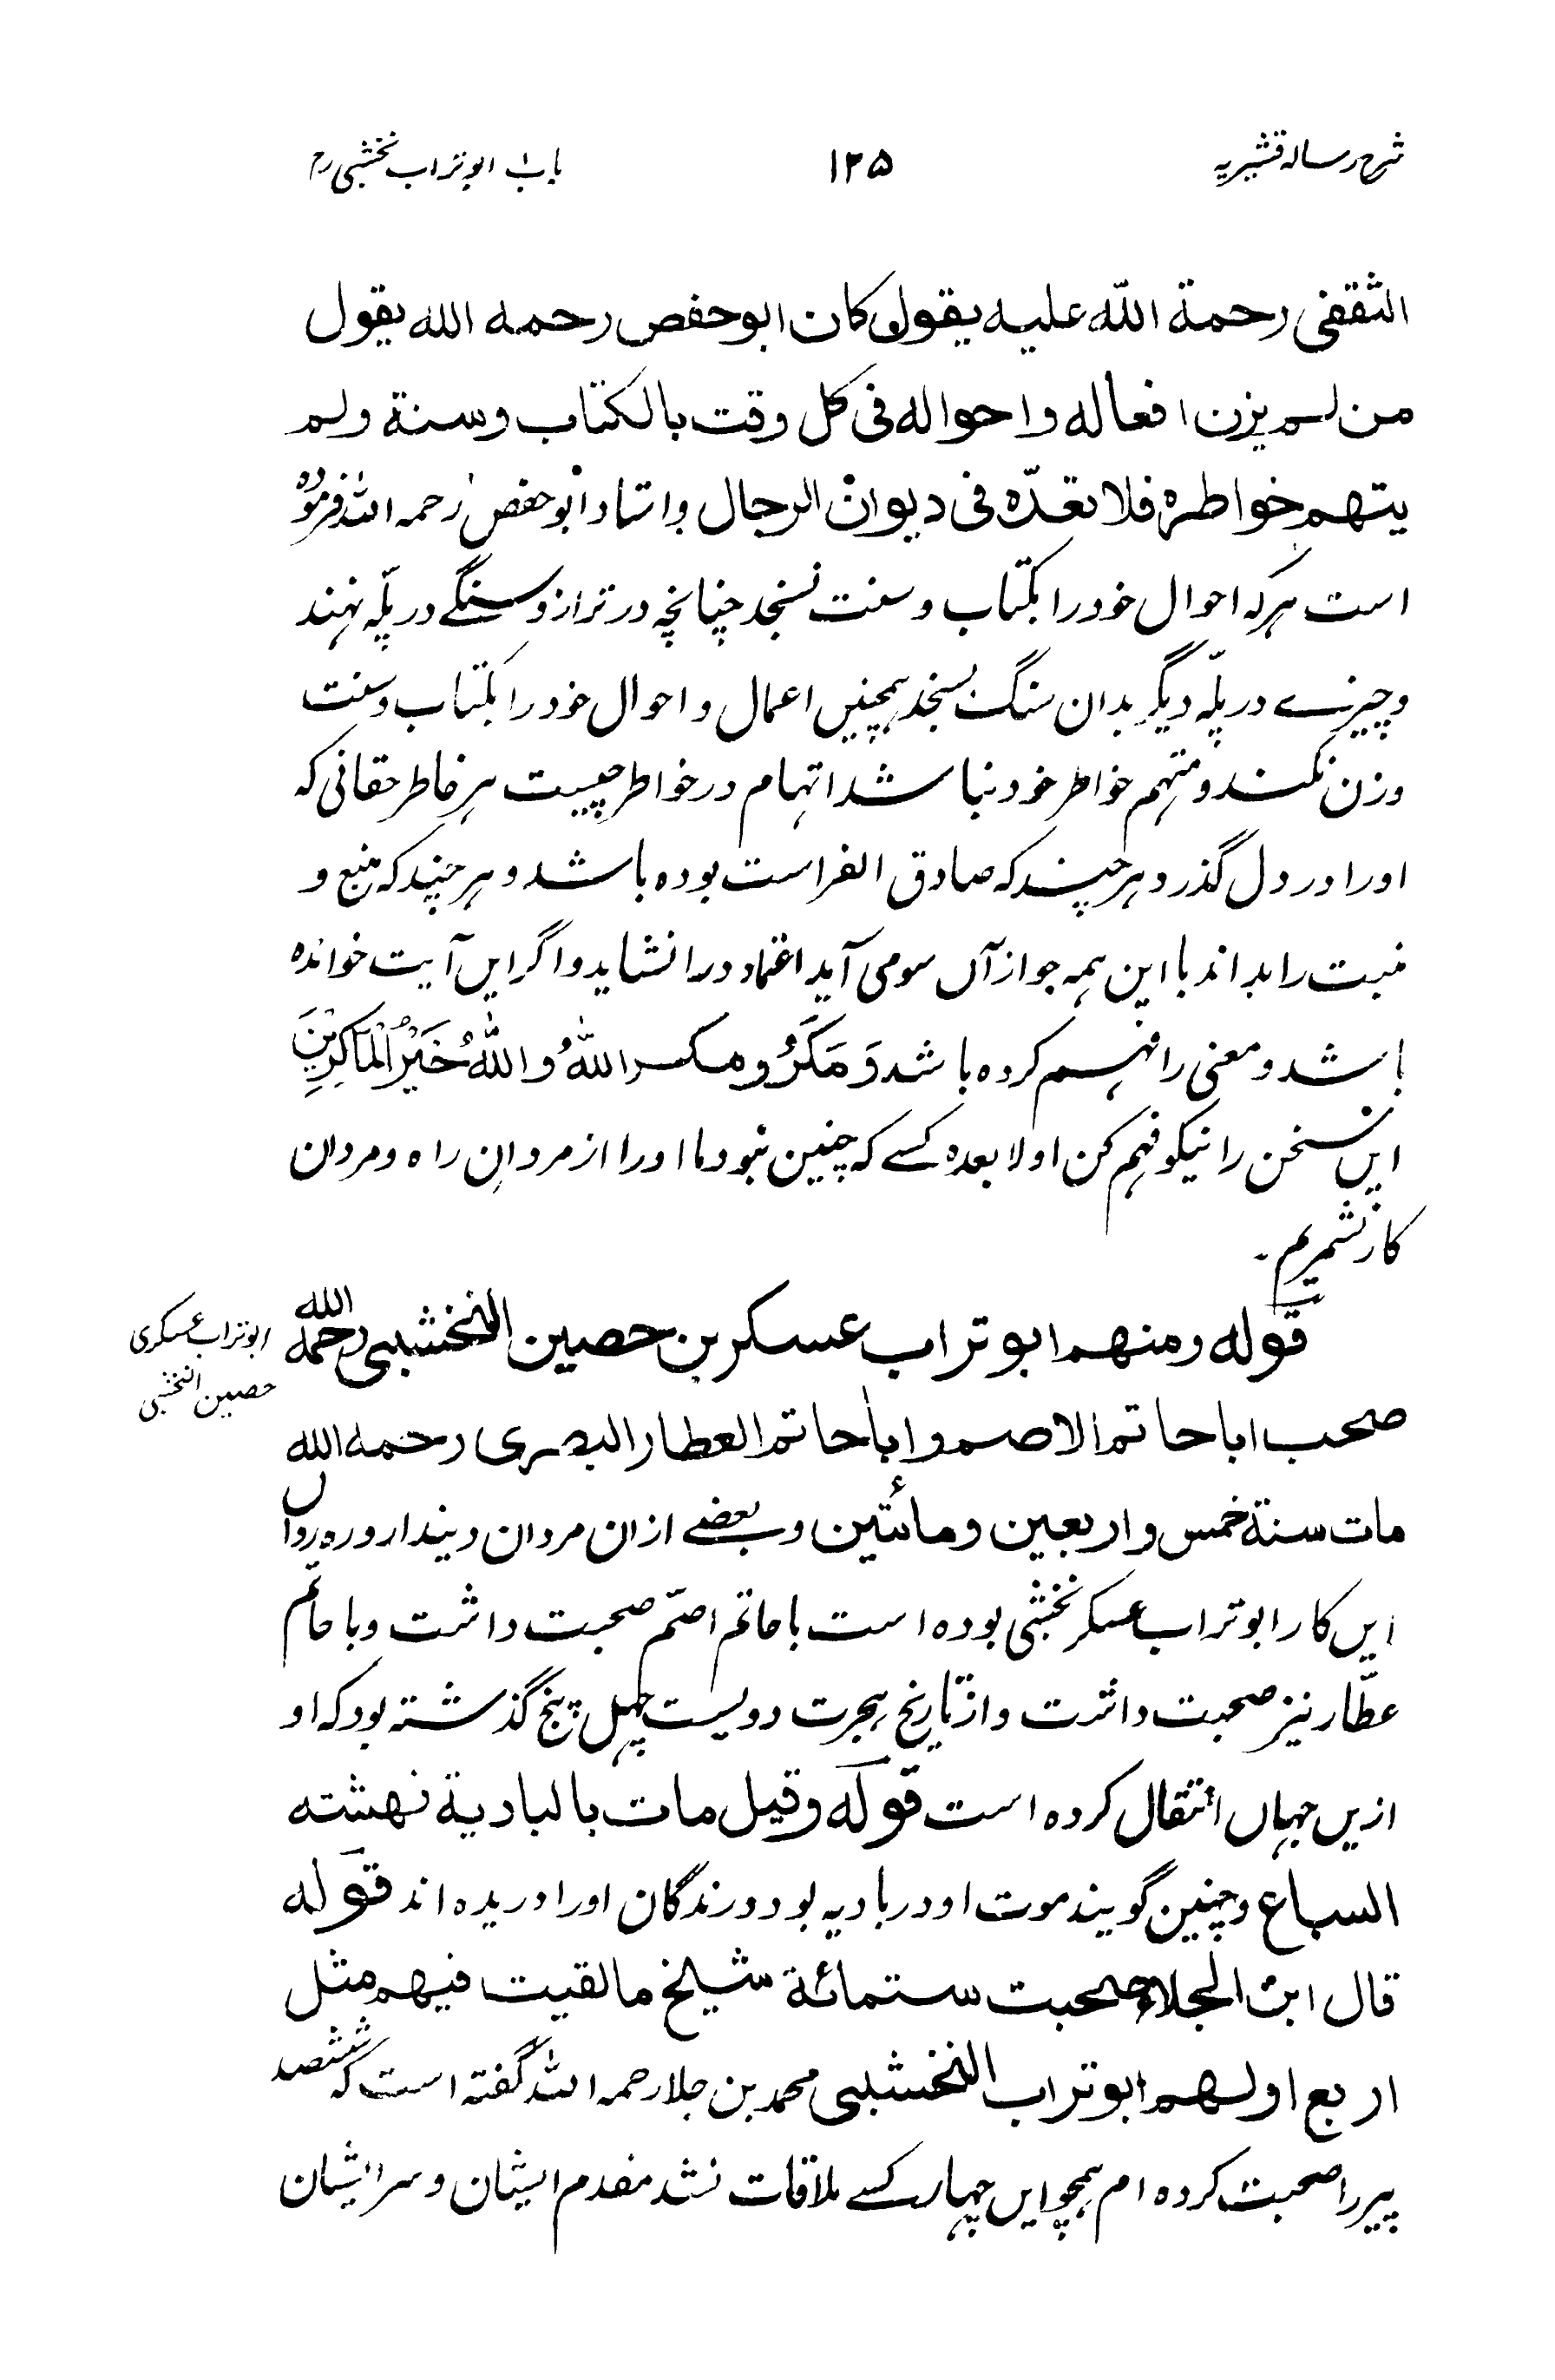 شرح رسالہ قشیریہ ۱۲۵ باب ابوتراب نخشبی رح
الثقفی رحمة اللّٰه علیه یقول کان ابوحفص رحمه الله یقول
من لم یزن افعاله واحواله فی کل وقت بالکتاب وسنة ولم
یتهم خواطره فلا تعدّه فی دیوان الرجال واستاد ابوحفص رحمه الله فرموده
است هرکه احوال خود را بکتاب و سنت نسنجد چنانچه در ترازو سنگے در پلّه نهند
وچیزے در پلّه دیگر بدان سنگ بسنجند همچنیں اعمال و احوال خود را بکتاب و سنت
وزن نکند و متهم خواطر خود نباشد اتهام در خواطر چیست هر خاطر حقانی که
اورا در دل گذرد هرچند که صادق الفراست بوده باشد و هرچند که منبع و
منبت را بداند با این همه جواز آں سومی آید اعتماد درا نشاید و اگر ایں آیت خوانده
باشد و معنی را فهم کرده باشد وَمَکَرُو ومکر اللّٰهُ واللّٰهُ خَیْرُ الْمَاکِرِیْنَ
ایں سخن را نیکو فهم کن اولا بعده کسے که چنین نبود ما اورا از مردانِ راه و مردان
کار نشمریم۔
قوله ومنهم ابو تراب عسکر بن حصین النخشبی رحمه الله
ابوتراب عسکری
حصین النخشبی
صحب اباحاتم الاصم واباحاتم العطار البصری رحمه الله
مات سنة خمس واربعین ومائتین وبعضے ازان مردان دیندار و ره رواں
ایں کار ابوتراب عسکر نخشبی بوده است با حاتم اصمّ صحبت داشت و با حاتم
عطّار نیز صحبت داشت و از تاریخ هجرت دویست چهل پنج گذشته بود که او
ازیں جهاں انتقال کرده است قوله وقیل مات بالبادیة نهشته
السباع وچنین گویند موت او در بادیه بود درندگان اورا دریده اند قوله
قال ابن الجلاء صحبت ستمائة شیخ ما لقیت فیهم مثل
اربع اولهم ابوتراب النخشبی محمد بن جلا رحمه الله گفته است که ششصد
پیر را صحبت کرده ام همچو ایں چهار کسے ملاقات نشد مقدم ایشان و سر ایشان